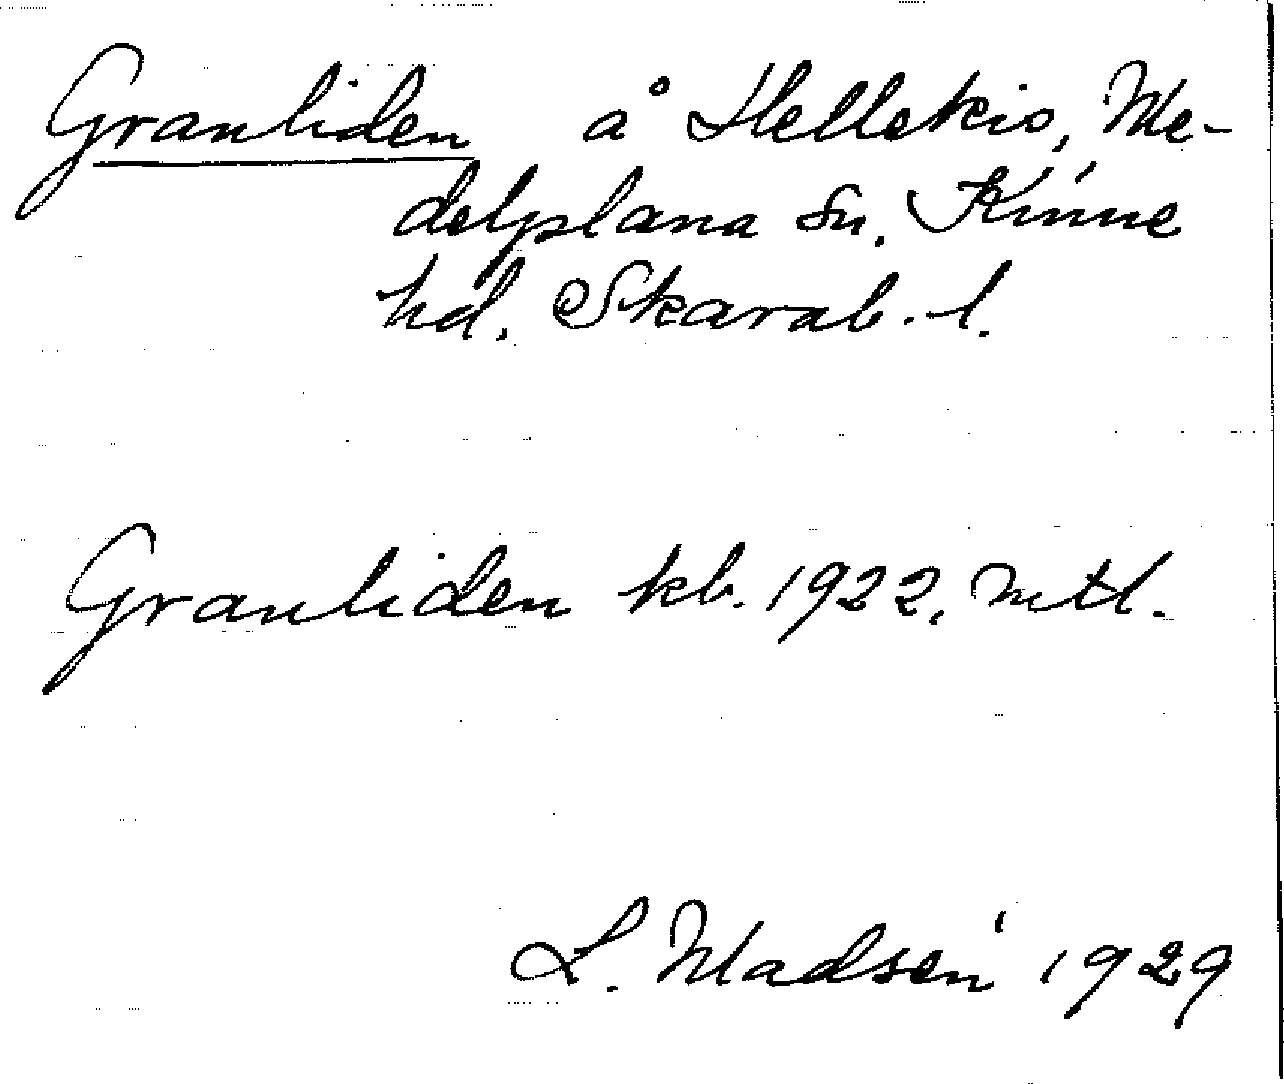 Granliden å Hellekis, Me-
delplana sn, Kinne
hd. Skarab. l.
Granliden kb. 1922. mtl.
L. Madsén 1929